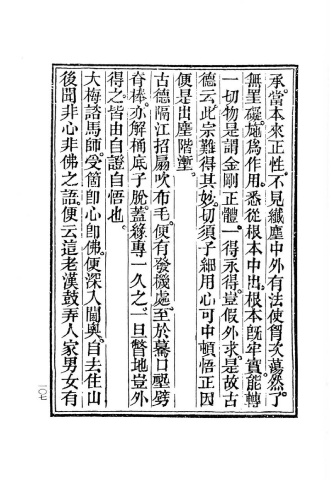 承當本來正性不見纖塵中外有法使胷次蕩然了
無罣礙施爲作用悉從根本中出根本旣牢實能轉
一切物是謂金剛正體一得永得豈假外求是故古
德云此宗難得其妙切須子細用心可中頓悟正因
便是出塵階漸
古德隔江招扇吹布毛便有發機處至於驀口堲劈
脊棒亦解桶底子脫蓋緣專一久之一旦瞥地豈外
得之皆由自證自悟也
大梅諮馬師受箇卽心卽佛便深入閫奥自去住山
後聞非心非佛之語便云這老漢鼓弄人家男女有
一〇七